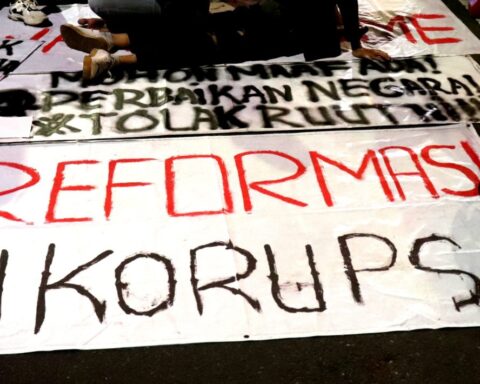 MOHON MAAF ADA!
PERBAIKAN NEGARA!
*TOLAK RUU TNI!!!
REFORMASI
KORUPSI